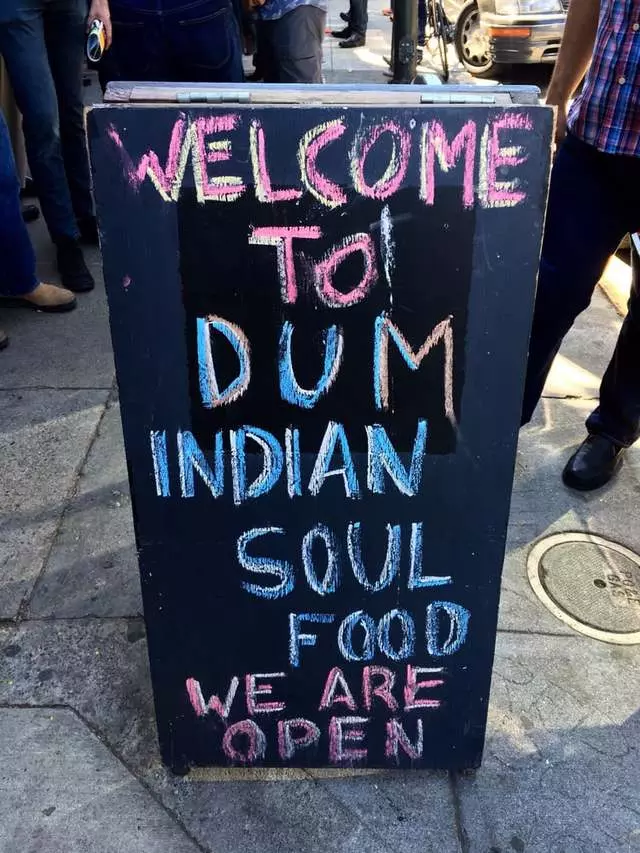 WELCOME
TO
DUM
INDIAN
SOUL
FOOD
WE ARE
OPEN